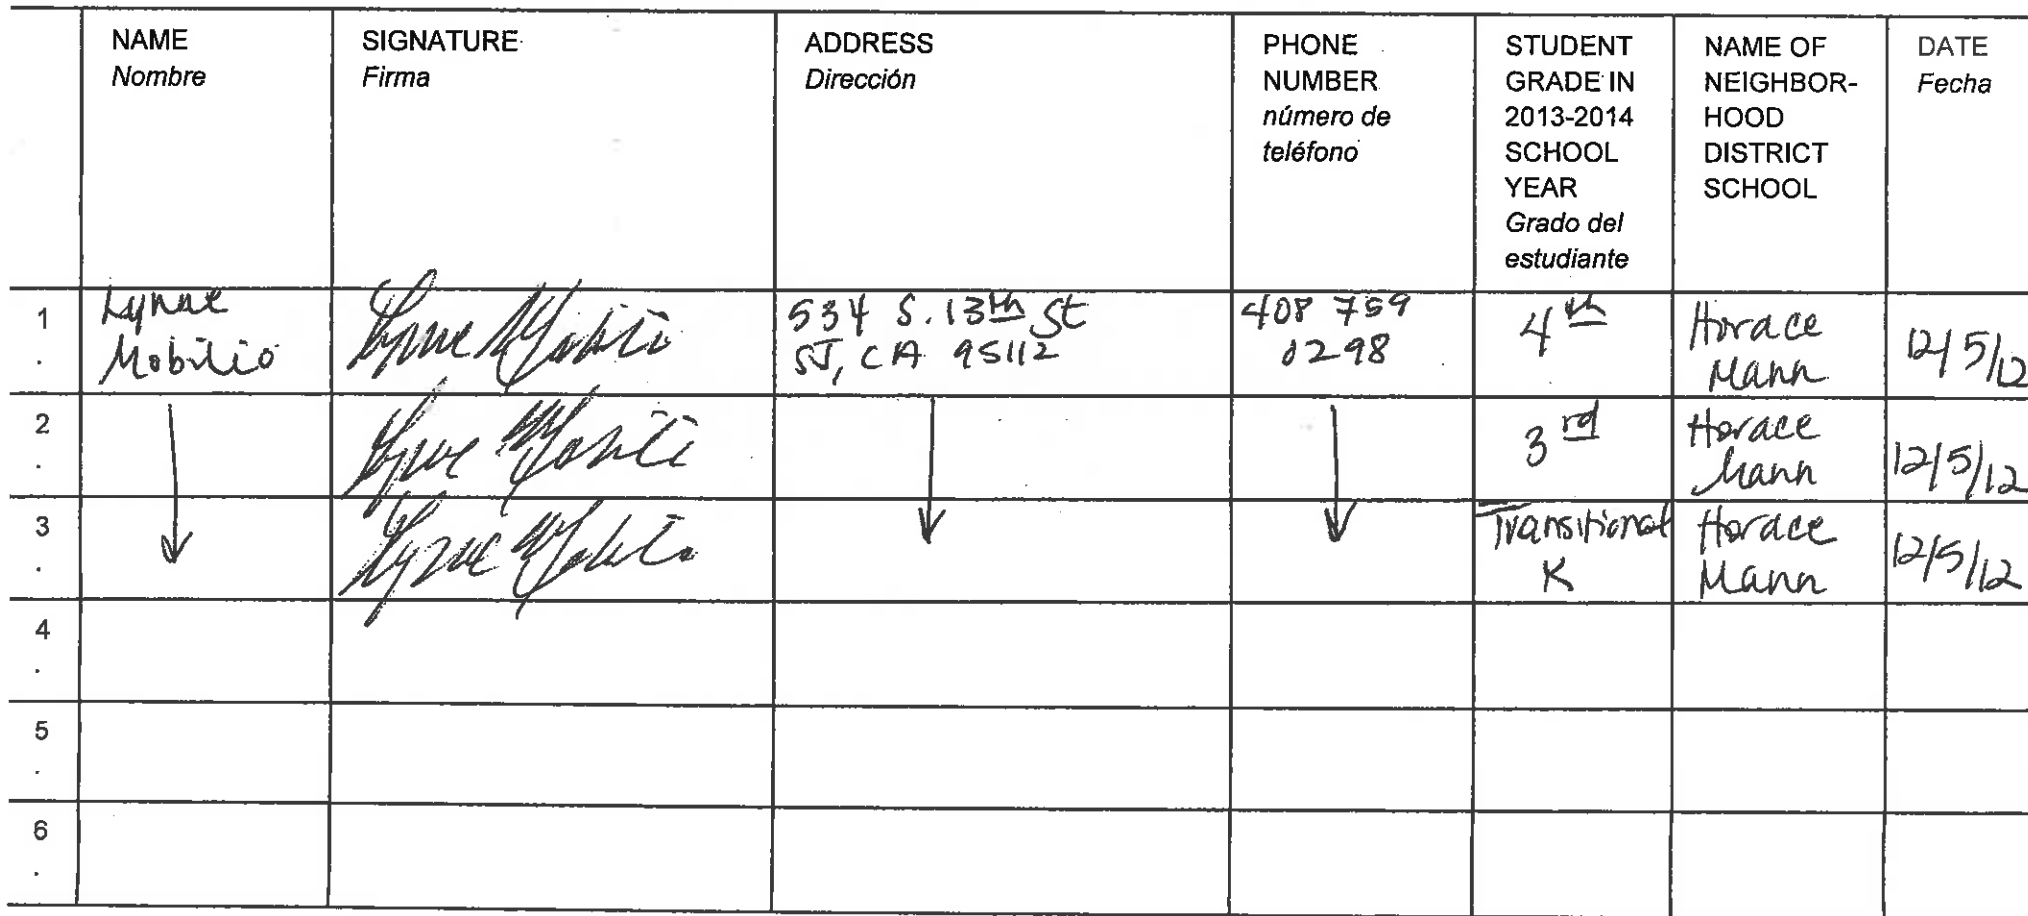 NAME
Nombre
SIGNATURE
Firma
ADDRESS
Dirección
PHONE
NUMBER
número de
teléfono
STUDENT
GRADE IN
2013-2014
SCHOOL
YEAR
Grado del
estudiante
NAME OF
NEIGHBOR-
HOOD
DISTRICT
SCHOOL
DATE
Fecha
1
.
Lynne
Mobilio
Lynne Mobilio
534 S. 13th St
SJ, CA 95112
408 759
0298
4th
Horace
Mann
12/5/12
2
.
Lynne Mobilio
3rd
Horace
Mann
12/5/12
3
.
Lynne Mobilio
Transitional
K
Horace
Mann
12/5/12
4
.
5
.
6
.